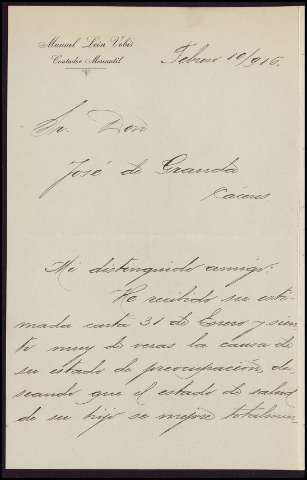 Manuel León Vobis
Contador Mercantil
Febrero 10/916.
Sr. Don
José de Granda
Cáceres
Mi distinguido amigo:
He recibido su esti-
mada carta 31 de Enero y sien-
to muy de veras la causa de
su estado de preocupación, de-
seando que el estado de salud
de su hijo se mejore totalmen-